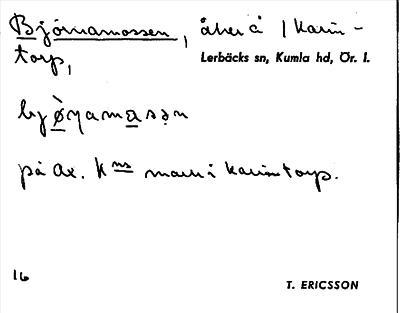 Björnamossen, åker å Karin-
torp, Lerbäcks sn, Kumla hd, Ör. l.
på Ax. Kns mark i Karintorp.
16
T. ERICSSON